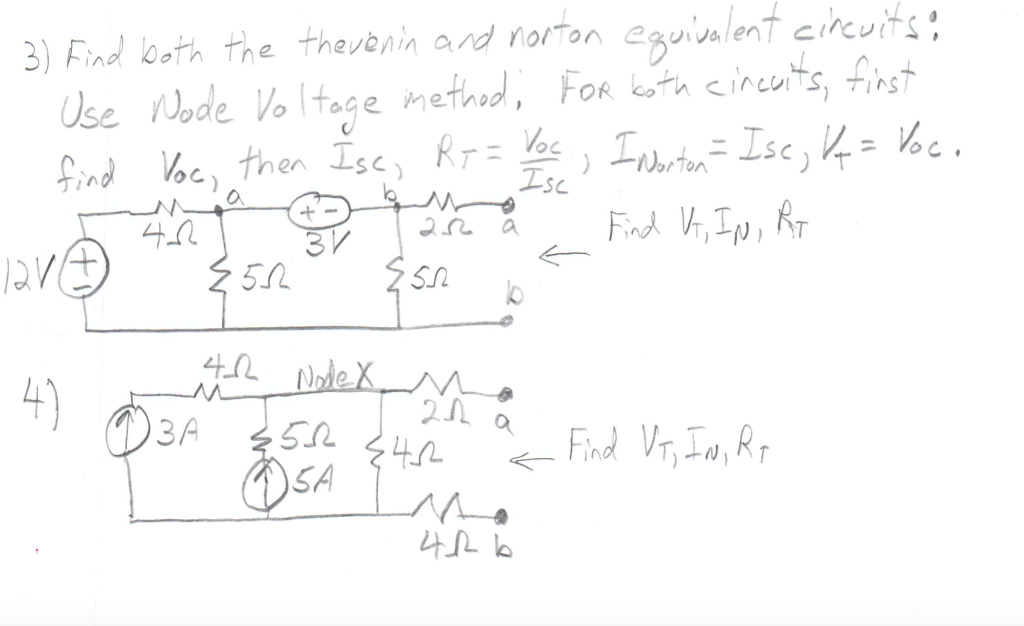 3) Find both the thevenin and norton equivalent circuits:
Use Node Voltage method. FOR both circuits, first
find Voc, then Isc, RT = Voc/Isc, INorton = Isc, VT = Voc.
a b
4Ω + - 2Ω a
3V
Find VT, IN, RT
12V + - 5Ω 5Ω
b
4) 4Ω Node X
2Ω a
3A 5Ω 4Ω
Find VT, IN, RT
5A
4Ω b